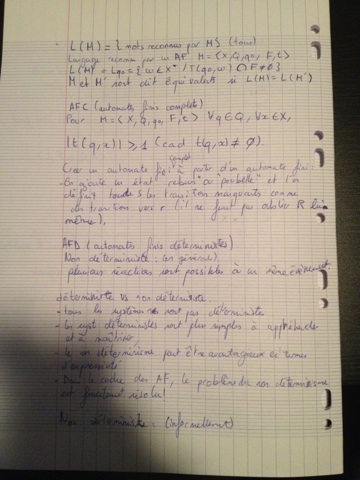 L(M) = { mots reconnus par M } (tous)
Langage reconnu par un AF M = (X, Q, q0, F, t)
L(M) = Lq0 = { w ∈ X* / t(q0, w) ∩ F ≠ ∅ }
M et M' sont dit équivalents si L(M) = L(M')
AFC (automates finis complet)
Pour M = (X, Q, q0, F, t) ∀q ∈ Q, ∀x ∈ X,
|t(q,x)| ≥ 1 (cad t(q,x) ≠ ∅).
complet
Créer un automate fini à partir d'un automate fini :
On ajoute un état rebut ou poubelle et l'on
définit toutes les transitions manquantes comme
transition vers r (il ne faut pas oublier R lui
même),
AFD (automates finis déterministes)
Non déterministe : (en général)
plusieurs réactions sont possibles à un même événement
déterministe vs non déterministe
- tous les systèmes ne sont pas déterministes
- les syst déterministes sont plus simples à appréhender
et à maîtriser
- le non déterminisme peut être avantageux en termes
d'expressivité
- Dans le cadre des AF, le problème du non déterminisme
est résolu!
Non déterministe : (informellement)